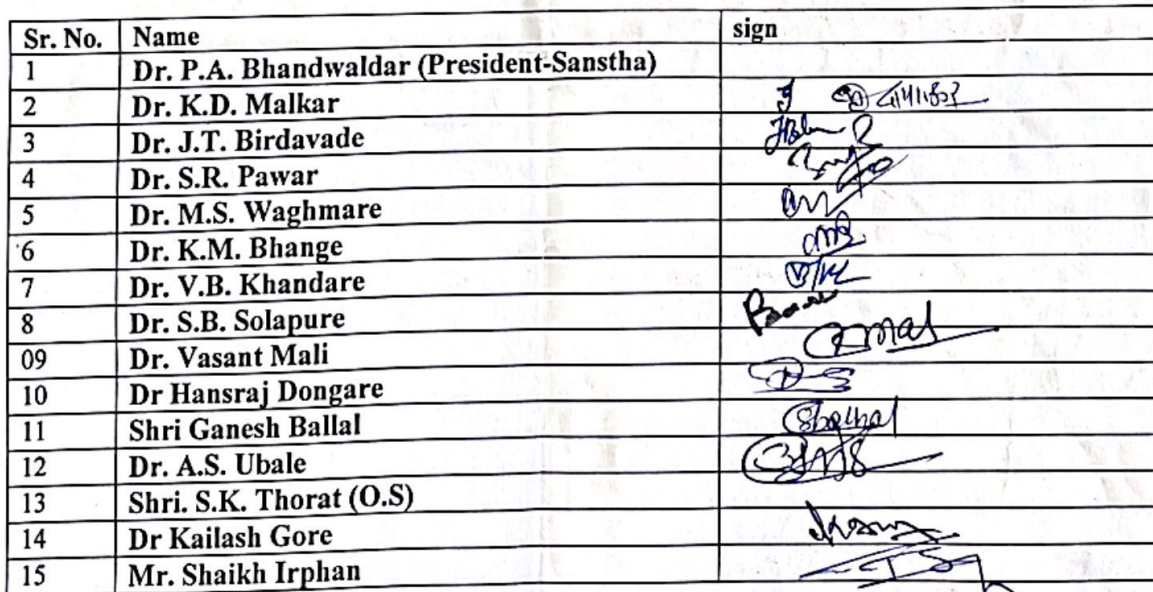 Sr. No. Name sign
1 Dr. P.A. Bhandwaldar (President-Sanstha)
2 Dr. K.D. Malkar
3 Dr. J.T. Birdavade
4 Dr. S.R. Pawar
5 Dr. M.S. Waghmare
6 Dr. K.M. Bhange
7 Dr. V.B. Khandare
8 Dr. S.B. Solapure
09 Dr. Vasant Mali
10 Dr Hansraj Dongare
11 Shri Ganesh Ballal
12 Dr. A.S. Ubale
13 Shri. S.K. Thorat (O.S)
14 Dr Kailash Gore
15 Mr. Shaikh Irphan